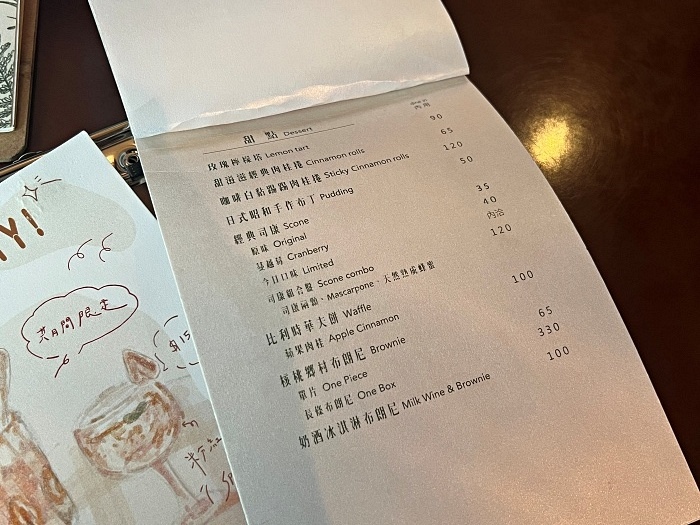 甜點 Dessert 內用
玫瑰檸檬塔 Lemon tart 90
甜滋滋經典肉桂捲 Cinnamon rolls 65
咖啡白黏踢踢肉桂捲 Sticky Cinnamon rolls 120
日式昭和手作布丁 Pudding 50
經典司康 Scone
原味 Original 35
蔓越莓 Cranberry 40
今日口味 Limited 內洽
司康組合盤 Scone combo 120
司康兩顆・Mascarpone・天然熟成蜂蜜
比利時華夫餅 Waffle
蘋果肉桂 Apple Cinnamon 100
核桃鄉村布朗尼 Brownie
單片 One Piece 65
長條布朗尼 One Box 330
奶酒冰淇淋布朗尼 Milk Wine & Brownie 100
Y!
期間限定
$15